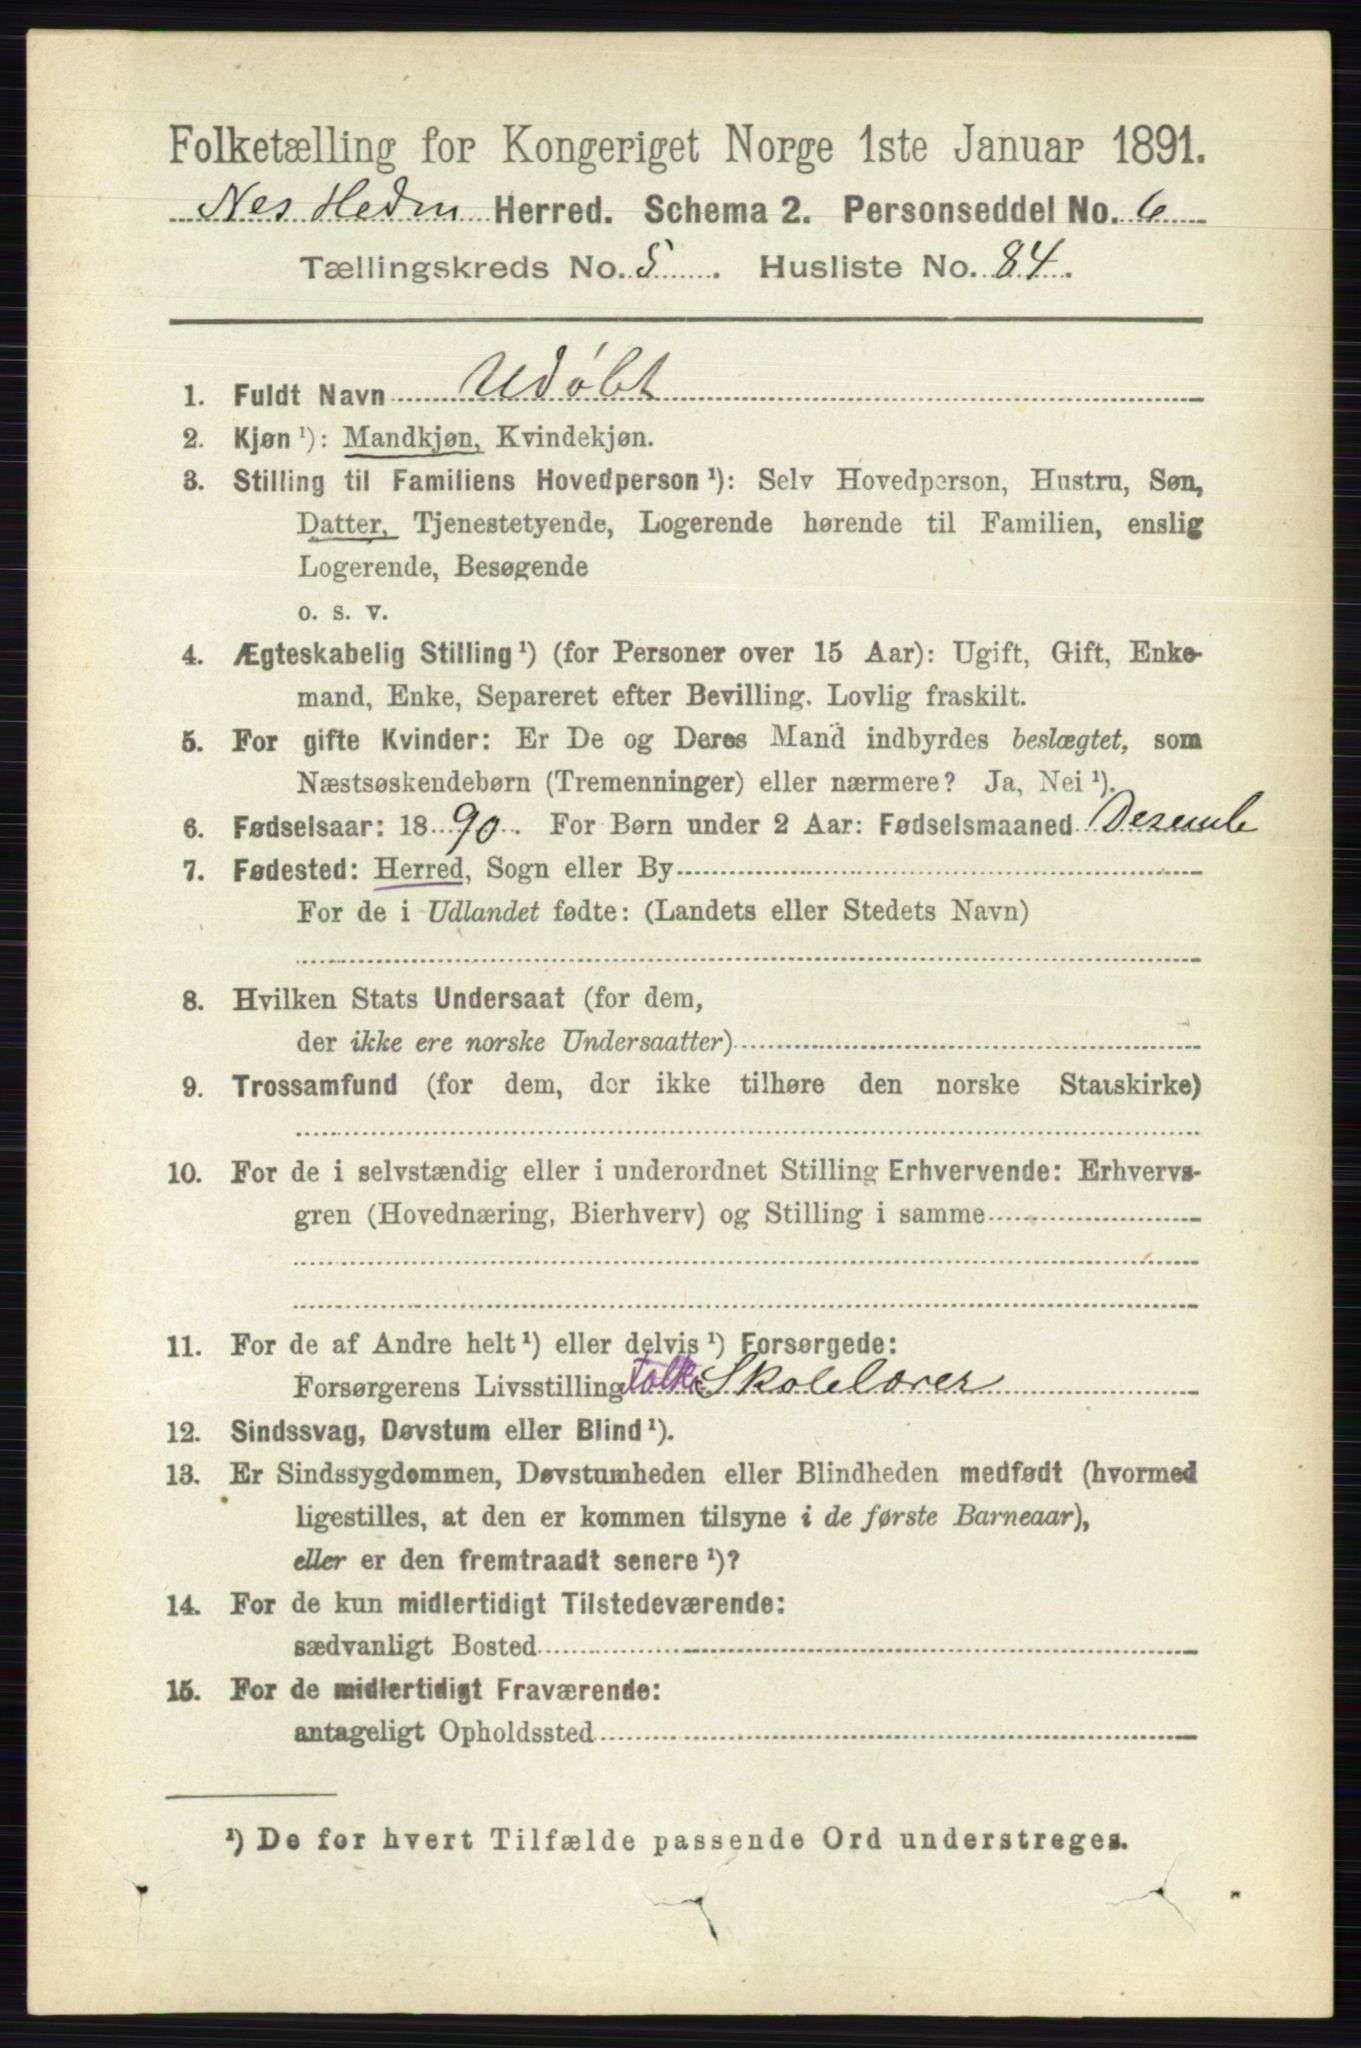 Folketælling for Kongeriget Norge 1ste Januar 1891.
Nes Hedm Herred. Schema 2. Personseddel No. 6
Tællingskreds No. 5. Husliste No. 84.
1. Fuldt Navn Udøbt
2. Kjøn ¹): Mandkjøn, Kvindekjøn.
3. Stilling til Familiens Hovedperson ¹): Selv Hovedperson, Hustru, Søn,
Datter, Tjenestetyende, Logerende hørende til Familien, enslig
Logerende, Besøgende
o. s. v.
4. Ægteskabelig Stilling ¹) (for Personer over 15 Aar): Ugift, Gift, Enke-
mand, Enke, Separeret efter Bevilling. Lovlig fraskilt.
5. For gifte Kvinder: Er De og Deres Mand indbyrdes beslægtet, som
Næstsøskendebørn (Tremenninger) eller nærmere? Ja, Nei ¹).
6. Fødselsaar: 1890. For Børn under 2 Aar: Fødselsmaaned Desembe
7. Fødested: Herred, Sogn eller By
For de i Udlandet fødte: (Landets eller Stedets Navn)
8. Hvilken Stats Undersaat (for dem,
der ikke ere norske Undersaatter)
9. Trossamfund (for dem, der ikke tilhøre den norske Statskirke)
10. For de i selvstændig eller i underordnet Stilling Erhvervende: Erhvervs-
gren (Hovednæring, Bierhverv) og Stilling i samme
11. For de af Andre helt ¹) eller delvis ¹) Forsørgede:
Forsørgerens Livsstilling Folke Skolelærer
12. Sindssvag, Døvstum eller Blind ¹).
13. Er Sindssygdommen, Døvstumheden eller Blindheden medfødt (hvormed
ligestilles, at den er kommen tilsyne i de første Barneaar),
eller er den fremtraadt senere ¹)?
14. For de kun midlertidigt Tilstedeværende:
sædvanligt Bosted
15. For de midlertidigt Fraværende:
antageligt Opholdssted
¹) De for hvert Tilfælde passende Ord understreges.